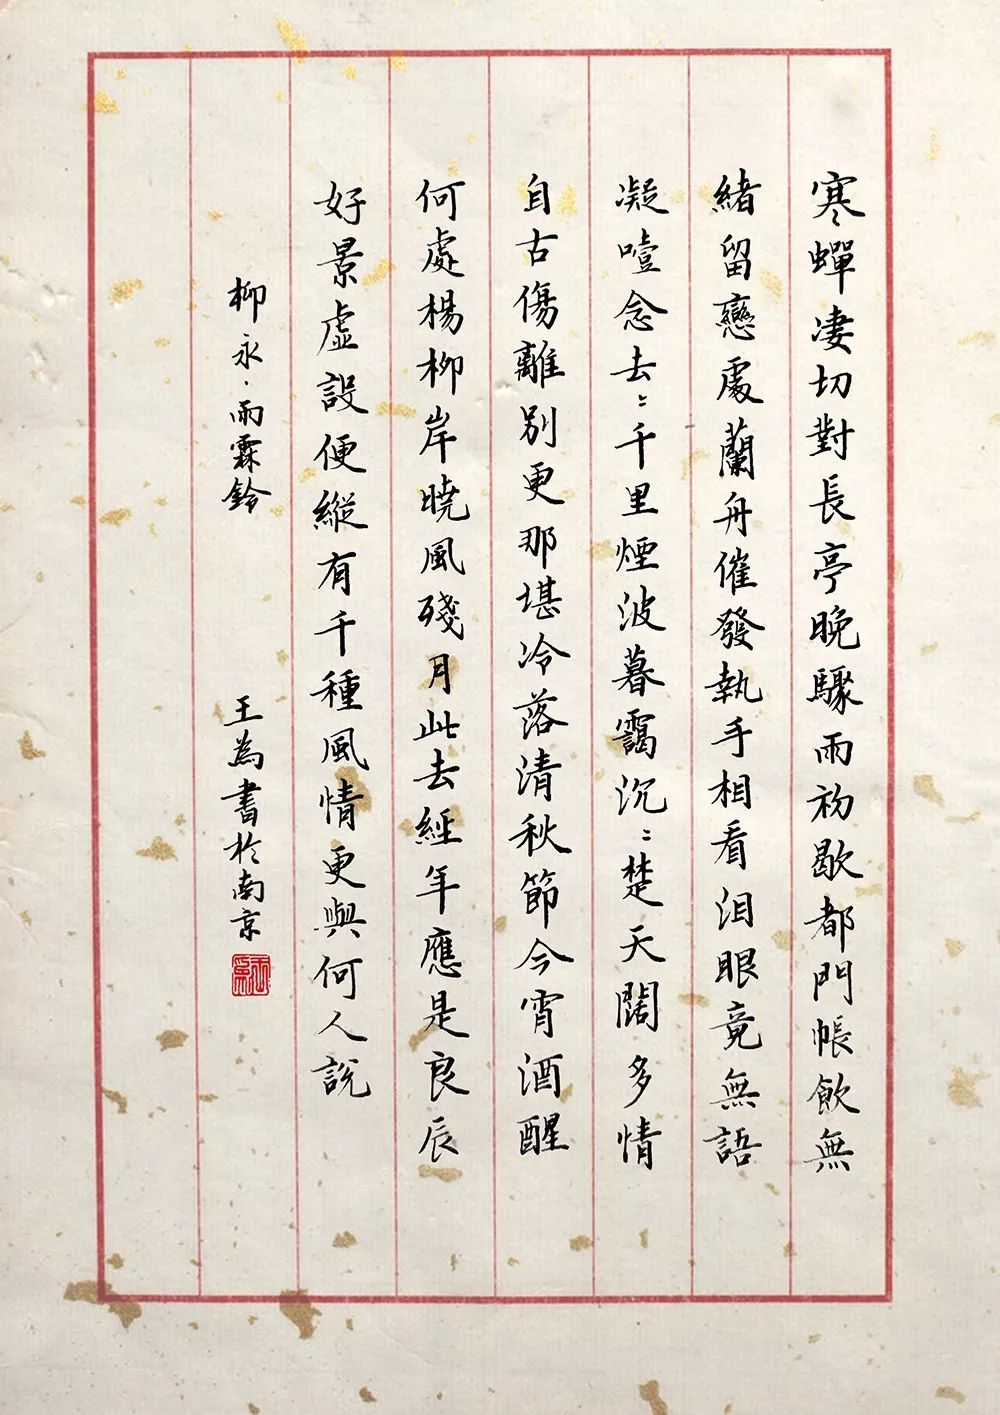 寒蟬凄切對長亭晚驟雨初歇都門帳飲無
緒留戀處蘭舟催發執手相看泪眼竟無語
凝噎念去〻千里煙波暮靄沉〻楚天闊多情
自古傷離別更那堪冷落清秋節今宵酒醒
何處楊柳岸曉風殘月此去經年應是良辰
好景虛設便縱有千種風情更與何人說
柳永·雨霖鈴 王為書於南京
王為